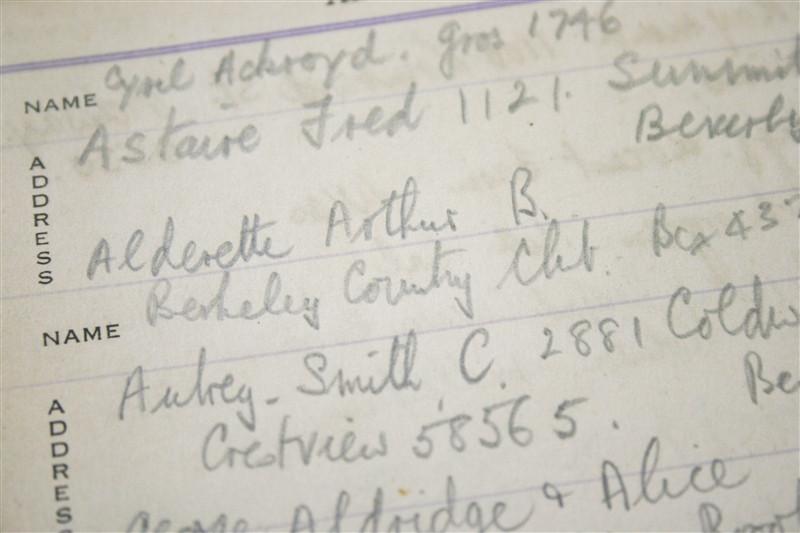 NAME Cyril Ackroyd. Gros 1746
Astaire Fred 1121. Summit
ADDRESS
Beverly
Alderette Arthur B.
Berkeley Country Club. Box 437
NAME
Aubrey-Smith, C. 2881 Coldw
Be
ADDRESS
Crestview 58565.
George Aldridge & Alice